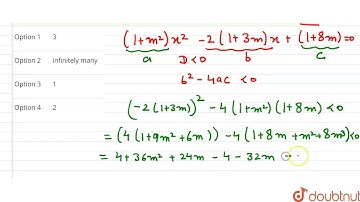 Option 1 3
Option 2 infinitely many
Option 3 1
Option 4 2
(1+m²)x² -2(1+3m)x + (1+8m)=0
a b c
D<0
b²-4ac <0
(-2(1+3m))² -4(1+m²)(1+8m)<0
=(4(1+9m²+6m)) -4(1+8m+m²+8m³)<0
= 4+36m²+24m -4 -32m -
doubtnut